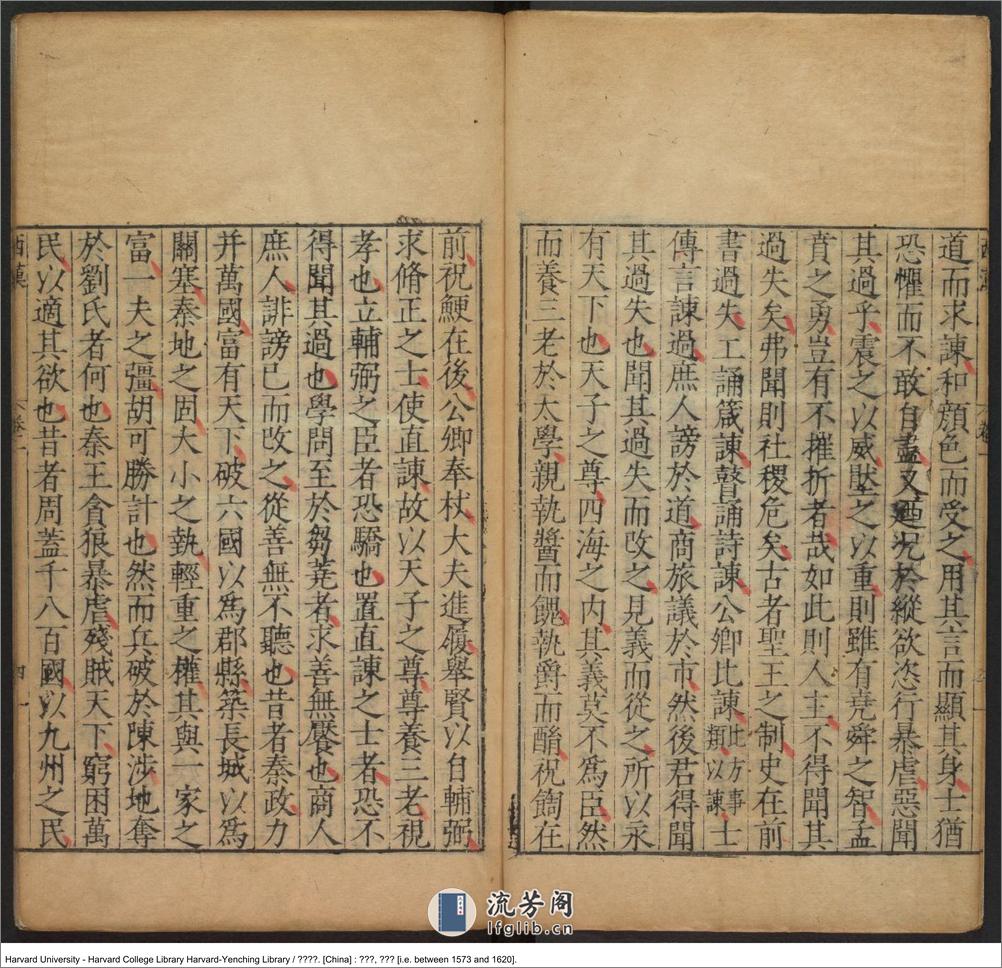 道而求諫和顏色而受之用其言而顯其身士猶
恐懼而不敢自盡又廼况於縱欲恣行暴虐惡聞
其過乎震之以威壓之以重則雖有堯舜之智孟
賁之勇豈有不摧折者哉如此則人主不得聞其
過失矣弗聞則社稷危矣古者聖王之制史在前
書過失工誦箴諫瞽誦詩諫公卿比諫比方事類以諫士
傳言諫過庶人謗於道商旅議於市然後君得聞
其過失也聞其過失而改之見義而從之所以永
有天下也天子之尊四海之内其義莫不為臣然
而養三老於太學親執醬而餽執爵而酳祝在
前祝鯁在後公卿奉杖大夫進履舉賢以自輔弼
求脩正之士使直諫故以天子之尊尊養三老視
孝也立輔弼之臣者恐驕也置直諫之士者恐不
得聞其過也學問至於芻蕘者求善無饜也商人
庶人誹謗己而改之從善無不聽也昔者秦政力
并萬國富有天下破六國以爲郡縣築長城以爲
關塞秦地之固大小之埶輕重之權其與一家之
富一夫之彊胡可勝計也然而兵破於陳涉地奪
於劉氏者何也秦王貪狼暴虐殘賊天下窮困萬
民以適其欲也昔者周蓋千八百國以九州之民
西漢
卷二
四
流芳阁
lfglib.cn
Harvard University - Harvard College Library Harvard-Yenching Library / ????. [China] : ???, ??? [i.e. between 1573 and 1620].